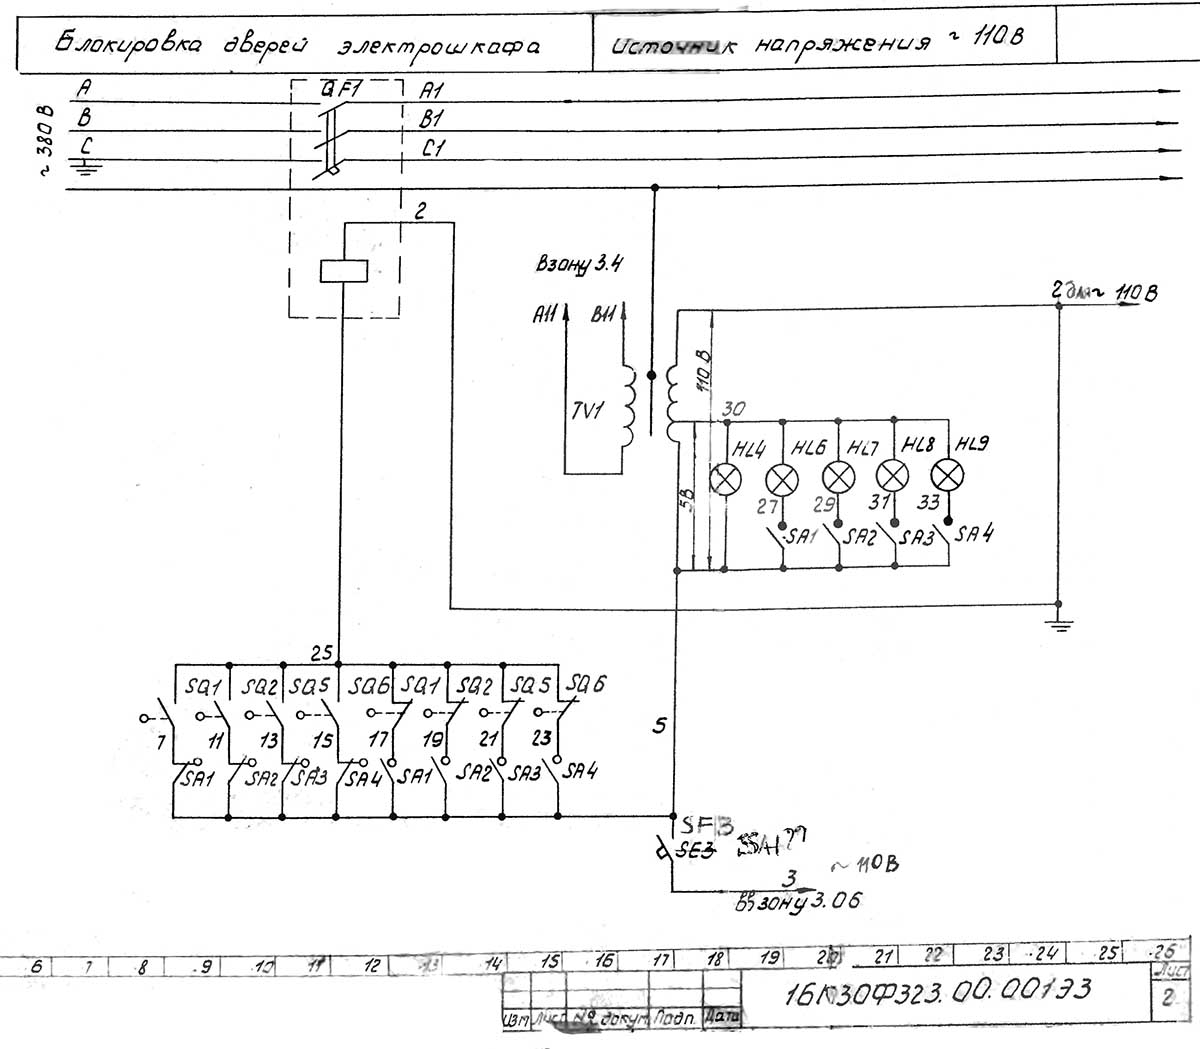 Блокировка дверей электрошкафа
Источник напряжения ~ 110 В
~ 380 В
A
B
C
QF1
A1
B1
C1
2
В зону 3.4
A11
B11
TV1
2 для ~ 110 В
110 В
5В
30
HL4
HL6
HL7
HL8
HL9
27
29
31
33
SA1
SA2
SA3
SA4
25
SQ1
SQ2
SQ5
SQ6
SQ1
SQ2
SQ5
SQ6
7
11
13
15
17
19
21
23
SA1
SA2
SA3
SA4
SA1
SA2
SA3
SA4
5
SF3
SE3
~ 110 В
3
В зону 3.06
6 7 8 9 10 11 12 13 14 15 16 17 18 19 20 21 22 23 24 25 26
16К30Ф323.00.001Э3
Лист
2
Изм Лист № докум. Подп. Дата